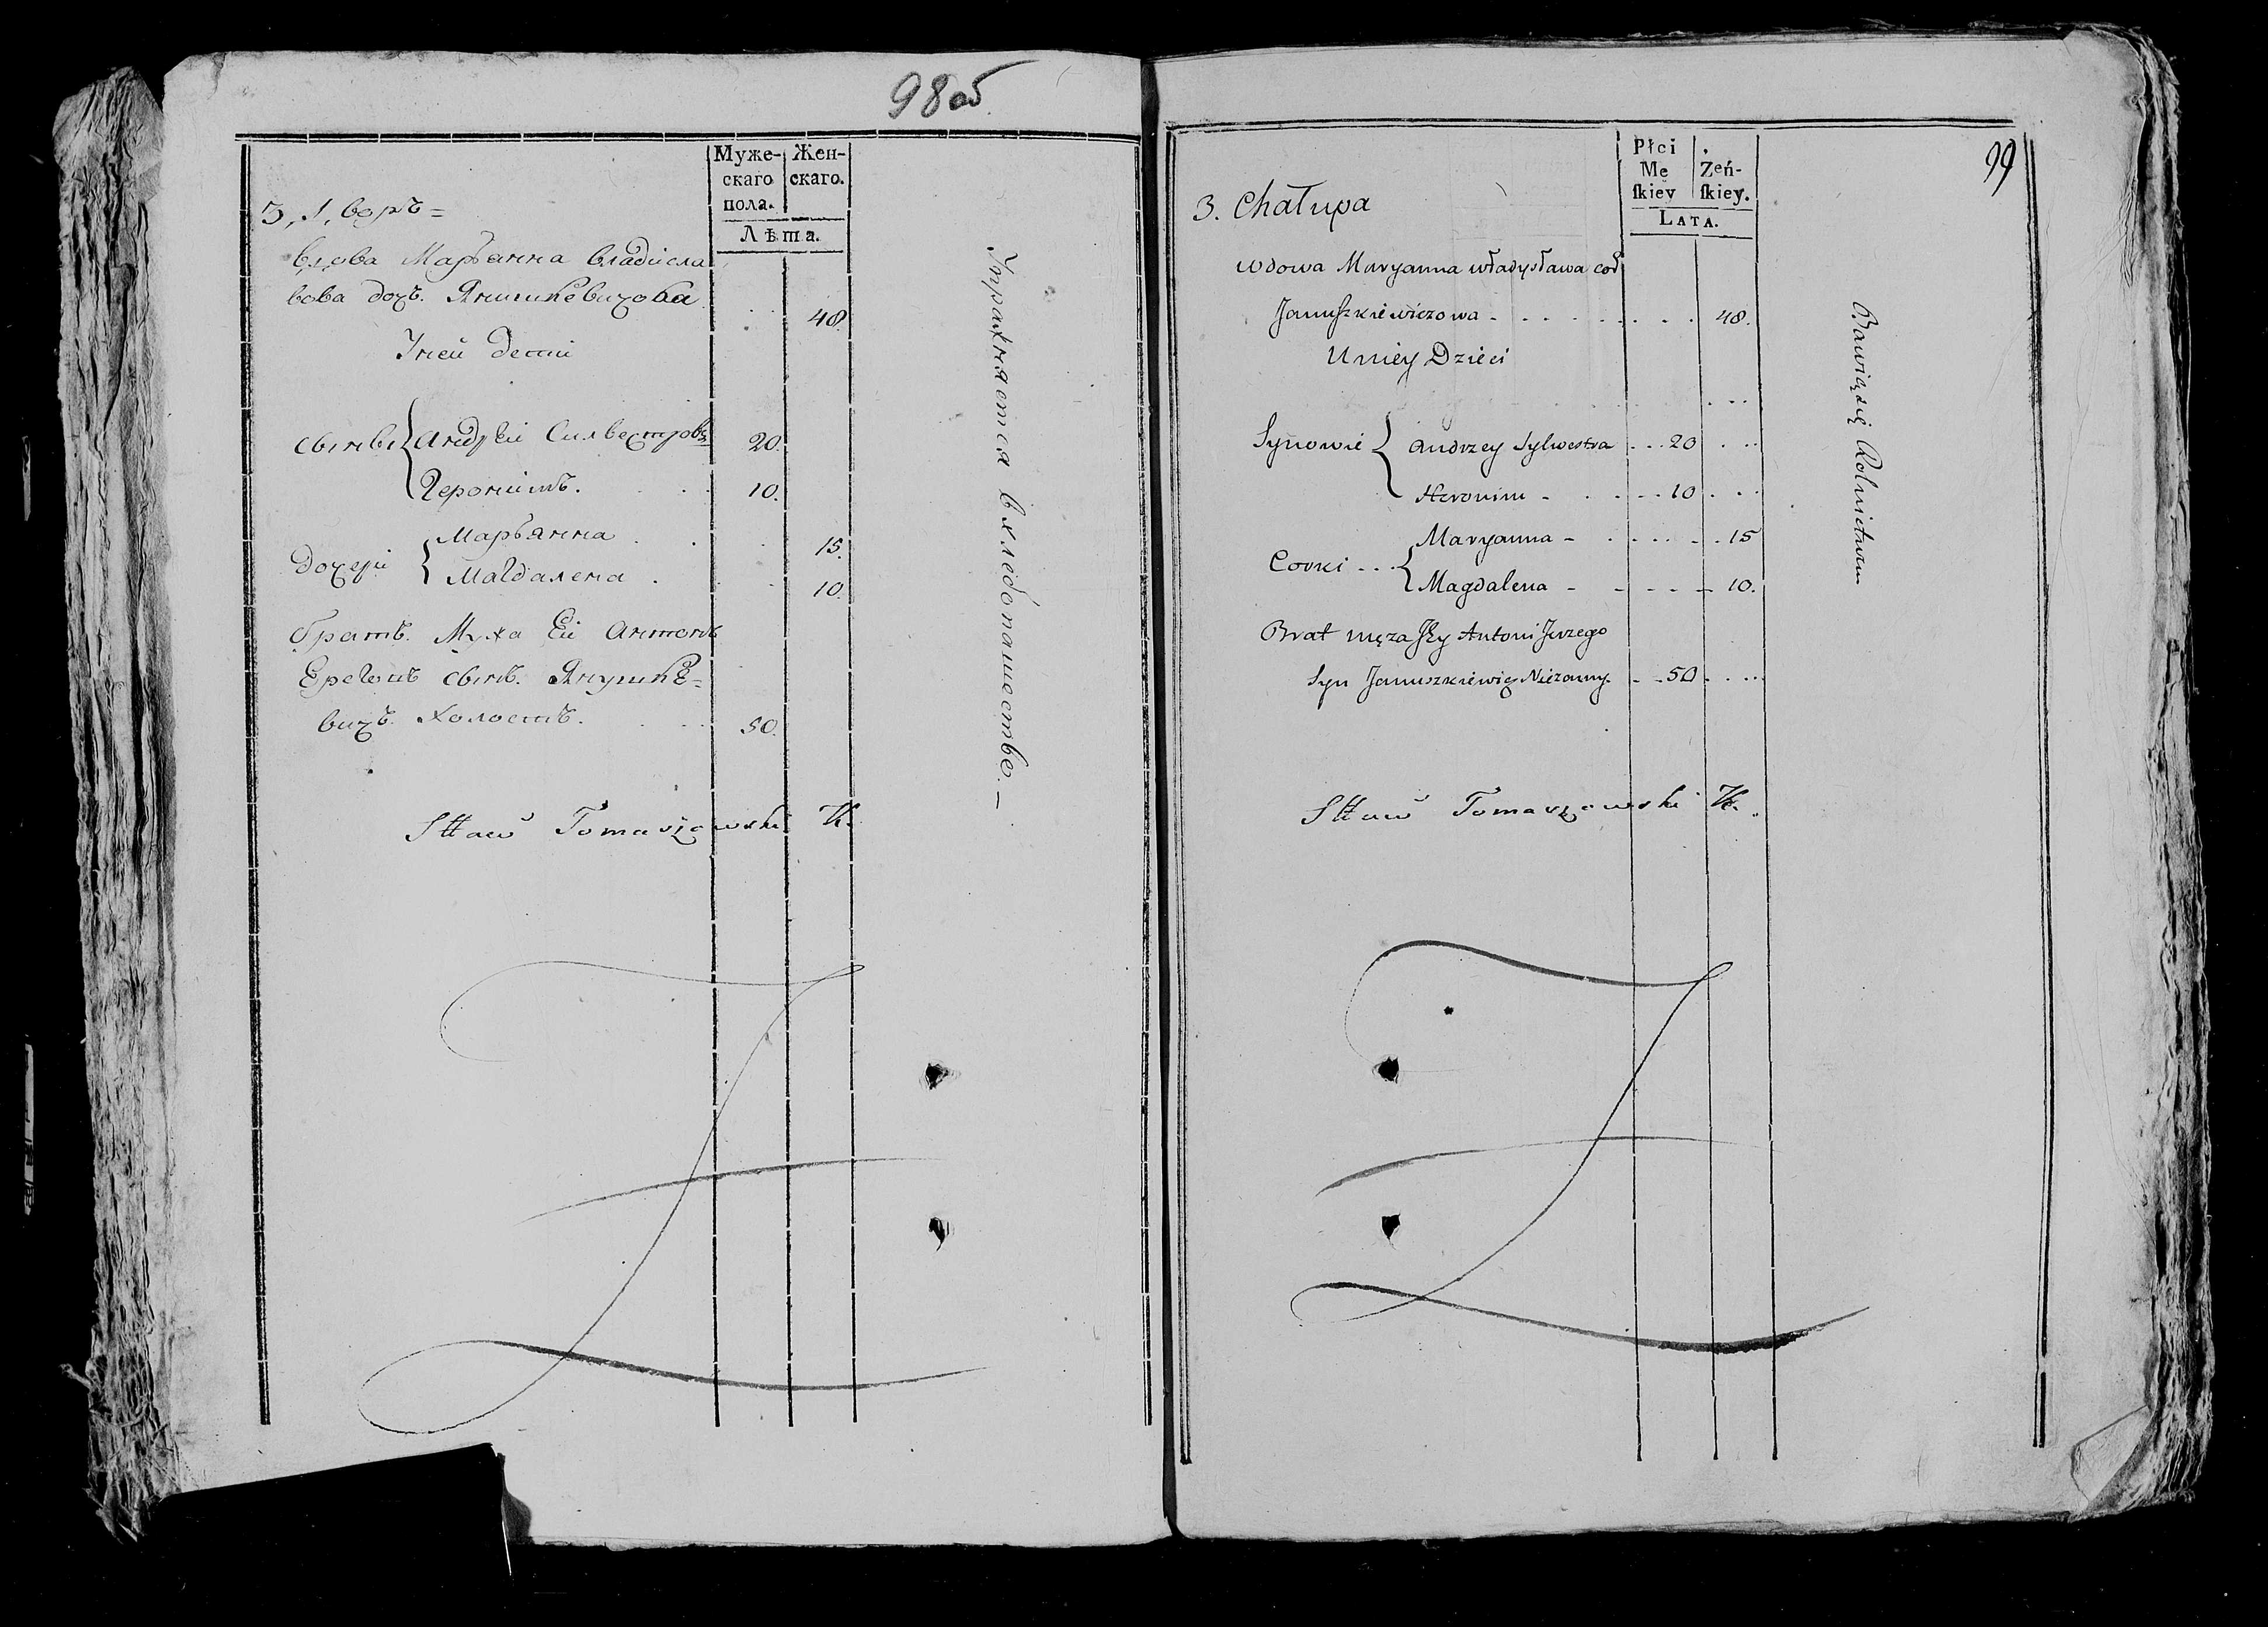 98 об.
Муже-
скаго
пола.
Жен-
скаго.
Лѣта.
3,
вдова Марьянна владисла
вова доч. Янушкевичова 48
У ней дети
Сынвя Андрѣй Силвестровъ 20
Героним. 10
дочери Марьянна 15
Магдалена 10
братъ. Мужа Ей Антонъ
сынъ. Янушке=
вичъ. Холостъ. 50
Упражняется в хлебопашестве.—
Sław Tomaszowski
99
Płci
Mę
skiey
Żeń-
skiey.
LATA.
3. Chałupa
wdowa Maryanna władysława cod
Januszkiewiczowa 48.
U niey Dzieci
Synowie Andrzey Sylwestra 20
Heronim 10
Corki Maryanna 15
Magdalena 10.
Brat męża Jey Antoni Jerzego
Syn Januszkiewicz Nieżonny 50
Bawią się Rolnictwem
Sław Tomaszowski